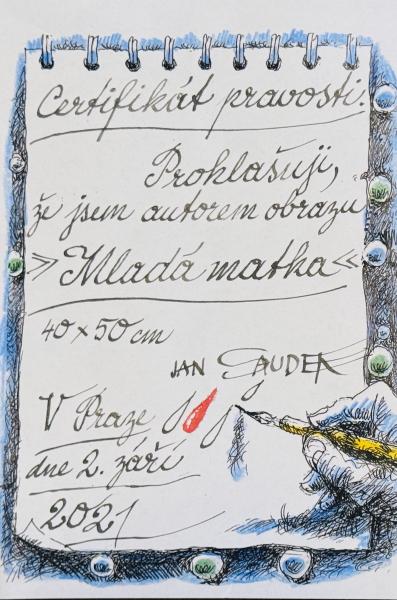 Certifikát pravosti.
Prohlašuji,
že jsem autorem obrazu
»Mladá matka«
40 x 50 cm
JAN SAUDEK
V Praze
dne 2. září
2021